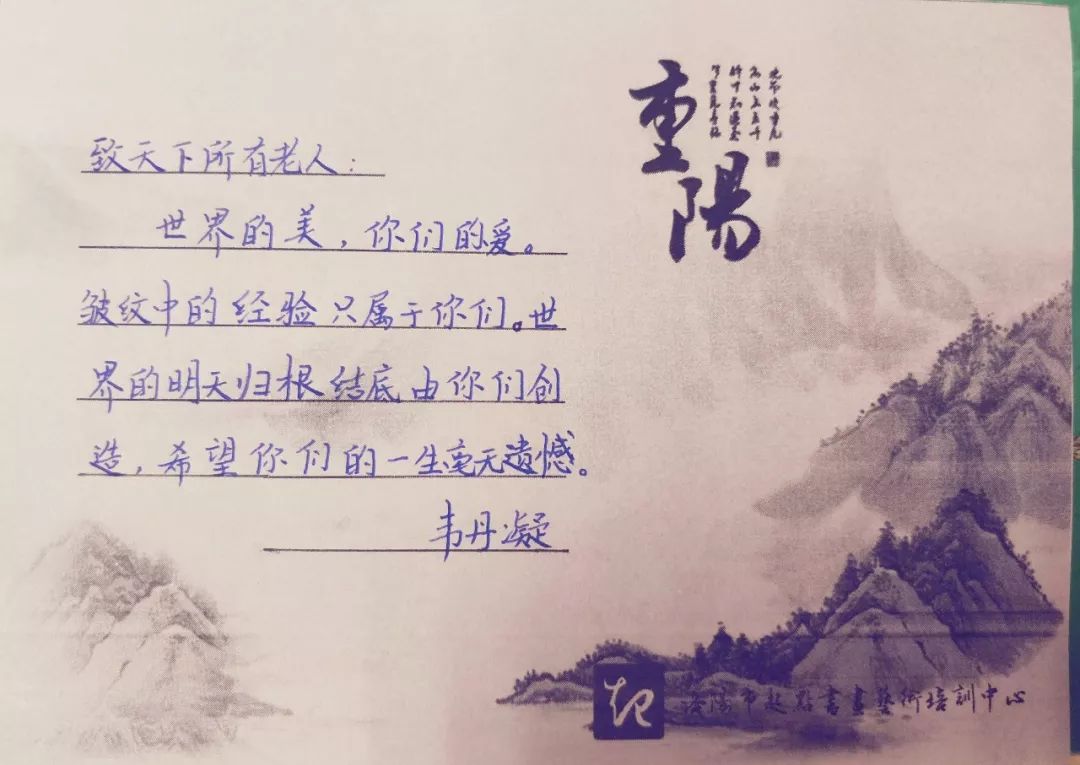 致天下所有老人：
世界的美，你们的爱。
皱纹中的经验只属于你们。世
界的明天归根结底由你们创
造，希望你们的一生毫无遗憾。
韦丹凝
重陽
起
洛陽市起點書畫藝術培訓中心